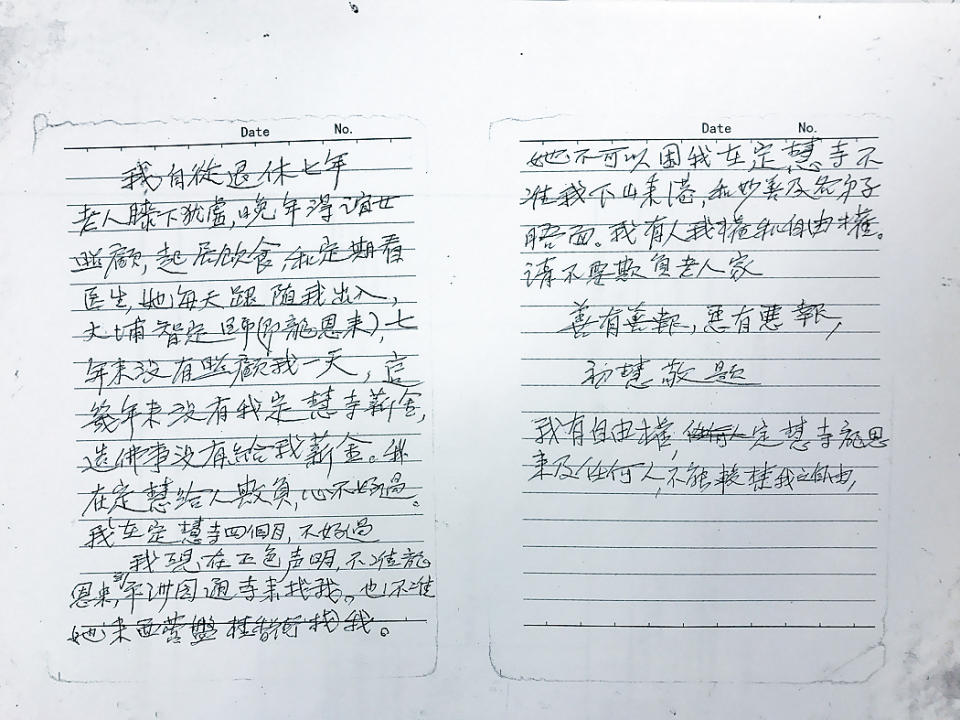 Date No.
我自從退休七年
老人膝下犹虚,晚年得誼女
照顧,起居飲食,和定期看
医生,她每天跟随我出入,
大埔智定師(即龍恩来),七
年来没有照顧我一天,這
幾年来没有我定慧寺薪金,
造佛事没有给我薪金。我
在定慧给人欺負,心不好過。
我在定慧寺四個月,不好過
我現在正色声明,不准龍
恩来,到平洲圆通寺来找我。也不准
她来西营盤桂香街找我。
Date No.
她不可以困我在定慧寺不
准我下山来港,和妙善及各弟子
晤面。我有人我權和自由權。
請不要欺負老人家
善有善報,惡有惡報,
初慧敬题
我有自由權,任何人定慧寺龍恩
来及任何人,不能接捷我之自由,